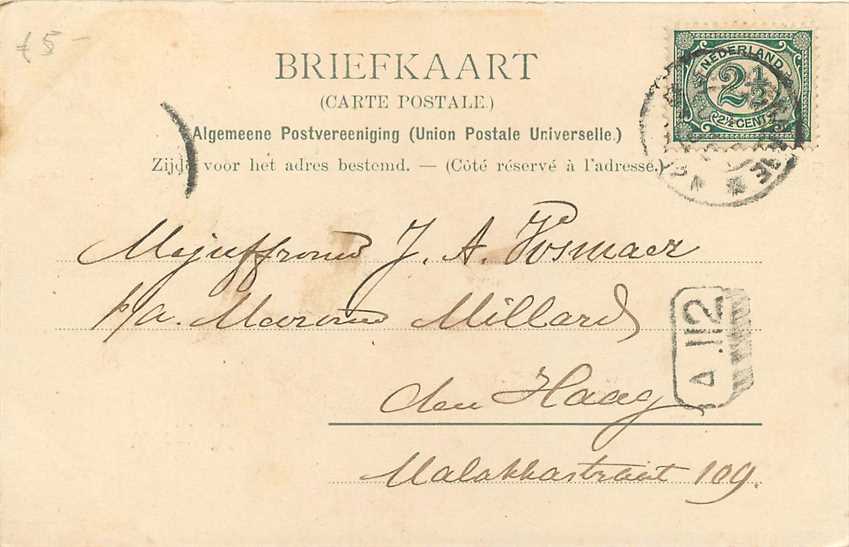 £5-
BRIEFKAART
(CARTE POSTALE.)
Algemeene Postvereeniging (Union Postale Universelle.)
Zijde voor het adres bestemd. — (Côté réservé à l'adresse.)
NEDERLAND
2½
2½ CENT
Mejuffrouw J. A. Vosmaer
p/a. Mevrouw Millard
den Haag
Malakkastraat 109.
A.112